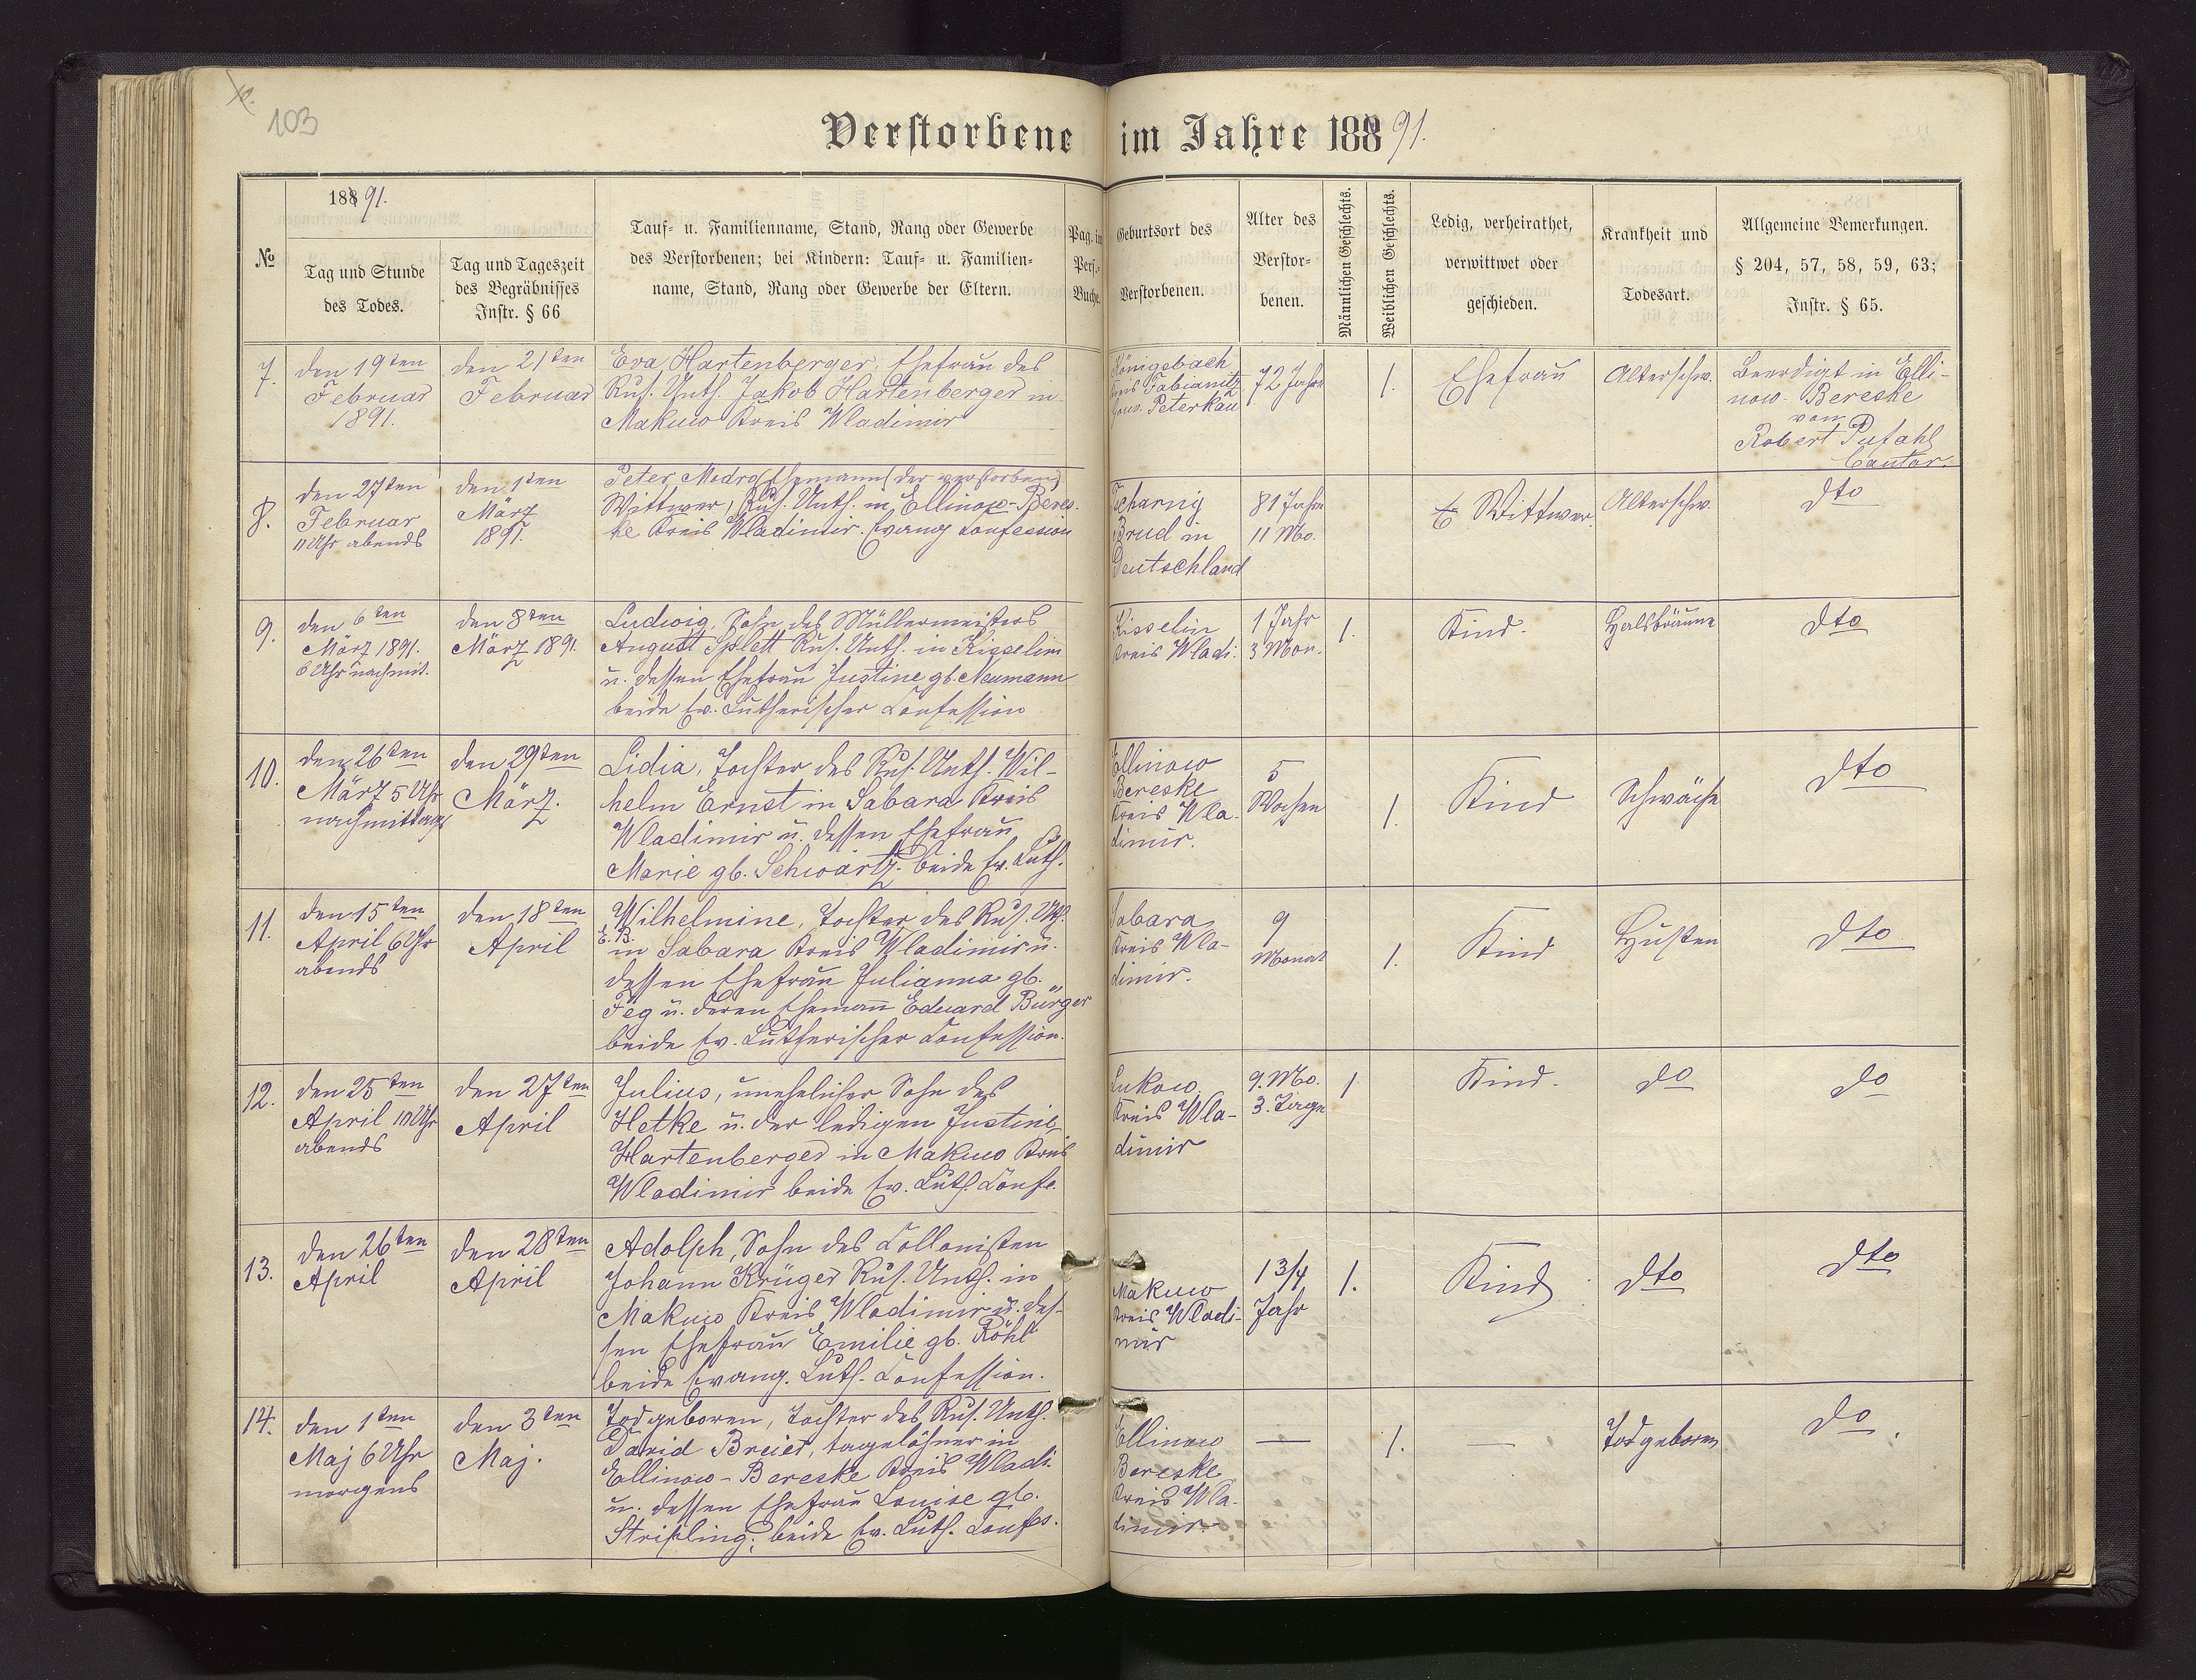 103
Verstorbene im Jahre 18891.
№
18891.
Tag und Stunde
des Todes.
Tag und Tageszeit
des Begräbnisses
Instr. § 66
Tauf- u. Familienname, Stand, Rang oder Gewerbe
des Verstorbenen; bei Kindern: Tauf- u. Familien-
name, Stand, Rang oder Gewerbe der Eltern.
Pag. im
Pers.-
Buche.
Geburtsort des
Verstorbenen.
Alter des
Verstor-
benen.
Männlichen Geschlechts.
Weiblichen Geschlechts.
Ledig, verheirathet,
verwittwet oder
geschieden.
Krankheit und
Todesart.
Allgemeine Bemerkungen.
§ 204, 57, 58, 59, 63;
Instr. § 65.
7.
den 19ten
Februar
1891.
den 21ten
Februar
Eva Hartenberger, Ehefrau des
Rus. Unth. Jakob Hartenberger in
Makuco Kreis Wladimir
Königsbach
Kreis Fabianitz
Gouv. Peterkau
72 Jahre
1.
Ehefrau
Altersschw.
Beerdigt in Elli-
now-Bereske
von
Robert Pufahl
Cantor.
8.
den 27ten
Februar
11 Uhr abends
den 1ten
März
1891.
Peter Medro (Ehemann der verstorben)
Wittwer, Rus. Unth. in Ellinow-Beres-
ke Kreis Wladimir. Evang Confession
Tcharnig
Brud in
Deutschland
81 Jahre
11 Mo.
Wittwer.
Altersschw.
dto
9.
den 6ten
März 1891.
6 Uhr nachmit.
den 8ten
März 1891.
Ludwig, Sohn des Müllermeisters
August Splett Rus. Unth. in Kisselin
u. dessen Ehefrau Justine gb. Neumann
beide Ev. Lutherischer Confession
Kisselin
Kreis Wladi.
1 Jahr
3 Mon.
1.
Kind.
Halsbräune
dto
10.
den 26ten
März 5 Uhr
nachmittags
den 29ten
März.
Lidia, Tochter des Rus. Unth. Wil-
helm Ernst in Sabara Kreis
Wladimir u. dessen Ehefrau
Marie gb. Schwartz. beide Ev. Luth.
Ellinow
Bereske
Kreis Wla-
dimir.
5
Wochen
1.
Kind
Schwäche
dto
11.
den 15ten
April 6 Uhr
abends
den 18ten
April
Wilhelmine, Tochter des Rus. Unth.
E. B.
in Sabara Kreis Wladimir u.
dessen Ehefrau Julianna gb.
Feg u. deren Ehemann Eduard Bürger
beide Ev. Lutherischer Confession.
Sabara
Kreis Wla-
dimir.
9
Monat
1.
Kind
Husten
dto
12.
den 25ten
April 10 Uhr
abends
den 27ten
April
Julius, unehelicher Sohn des
Hetke u. der ledigen Justine
Hartenberger in Makuco Kreis
Wladimir beide Ev. Luth. Confe.
Lukow
Kreis Wla-
dimir
9. Mo.
3. Tage
1
Kind.
do
do
13.
den 26ten
April
den 28ten
April
Adolph, Sohn des Collonisten
Johann Krüger Rus. Unth. in
Makuco Kreis Wladimir u. des-
sen Ehefrau Emilie gb. Röhl
beide Evang. Luth. Confession.
Makuco
Kreis Wladi-
mir
1 3/4
Jahr
1.
Kind
dto
dto
14.
den 1ten
Maj 6 Uhr
morgens
den 3ten
Maj.
Todgeboren, Tochter des Rus. Unth.
David Breier, tagelöhner in
Ellinow-Bereske Kreis Wladi.
u. dessen Ehefrau Louise gb.
Stripling; beide Ev. Luth. Confes.
Ellinow
Bereske
Kreis Wla-
dimir.
—
1.
—
Todgeboren
do.